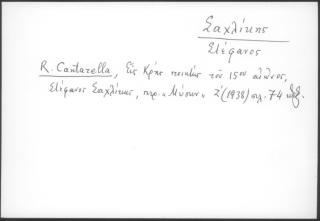 Σαχλίκης
Στέφανος
R. Cantarella, Εἷς Κρής ποιητής τοῦ 15ου αἰῶνος,
Στέφανος Σαχλίκης, περ. «Μύσων» Ζ' (1938) σελ. 74 κἑξ.